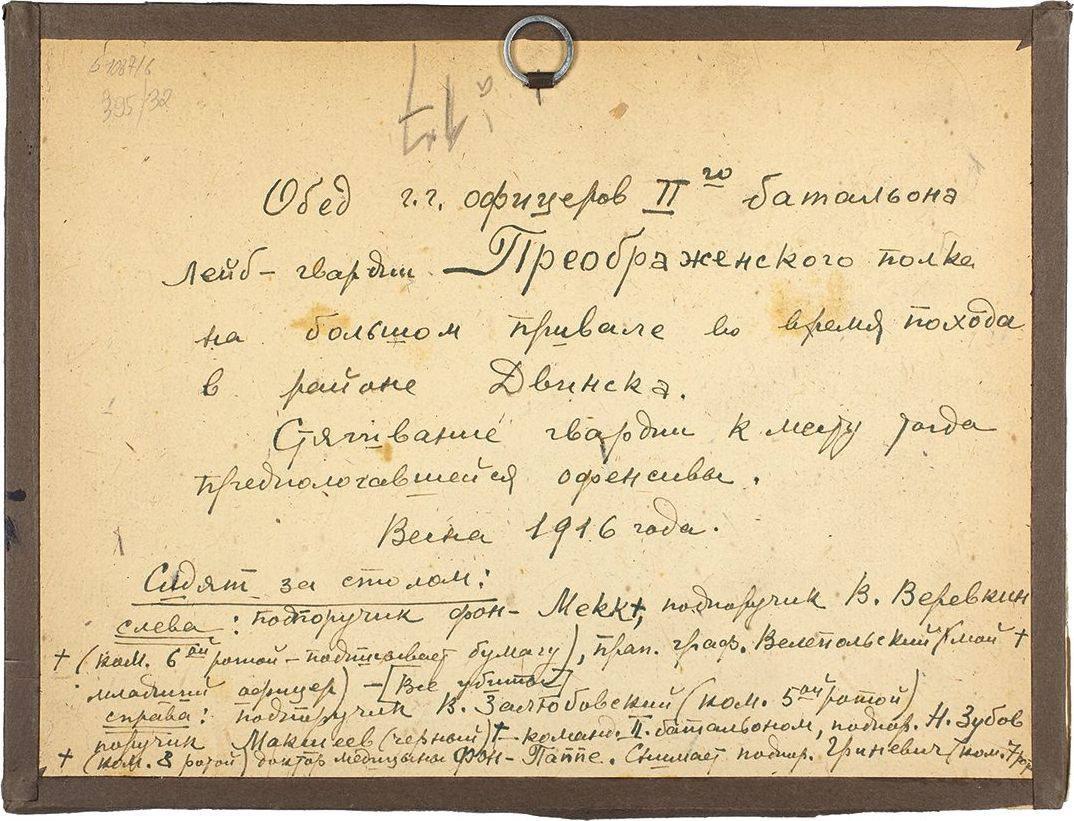 395/32
Обед г.г. офицеров II го батальона
Лейб-гвардии Преображенского полка
на большом привале во время похода
в районе Двинска.
Стягивание гвардии к месту тогда
предпологавшейся офенсивы.
Весна 1916 года.
Сидят за столом:
слева: подпоручик фон-Мекк+, подпоручик В. Веревкин
+ (ком. 6ой ротой - подписывает бумагу), прап. граф. Велепольский (мой +
младший офицер) - [Все убиты]
справа: подпоручик В. Залюбовский (ком. 5ой ротой)
поручик Макшеев (черный) + команд. II. батальоном, подпор. Н. Зубов
+ (ком. 8 ротой) доктор медицины Фон-Паппе. Снимает подпор. Гриневич (ком. 7 рот